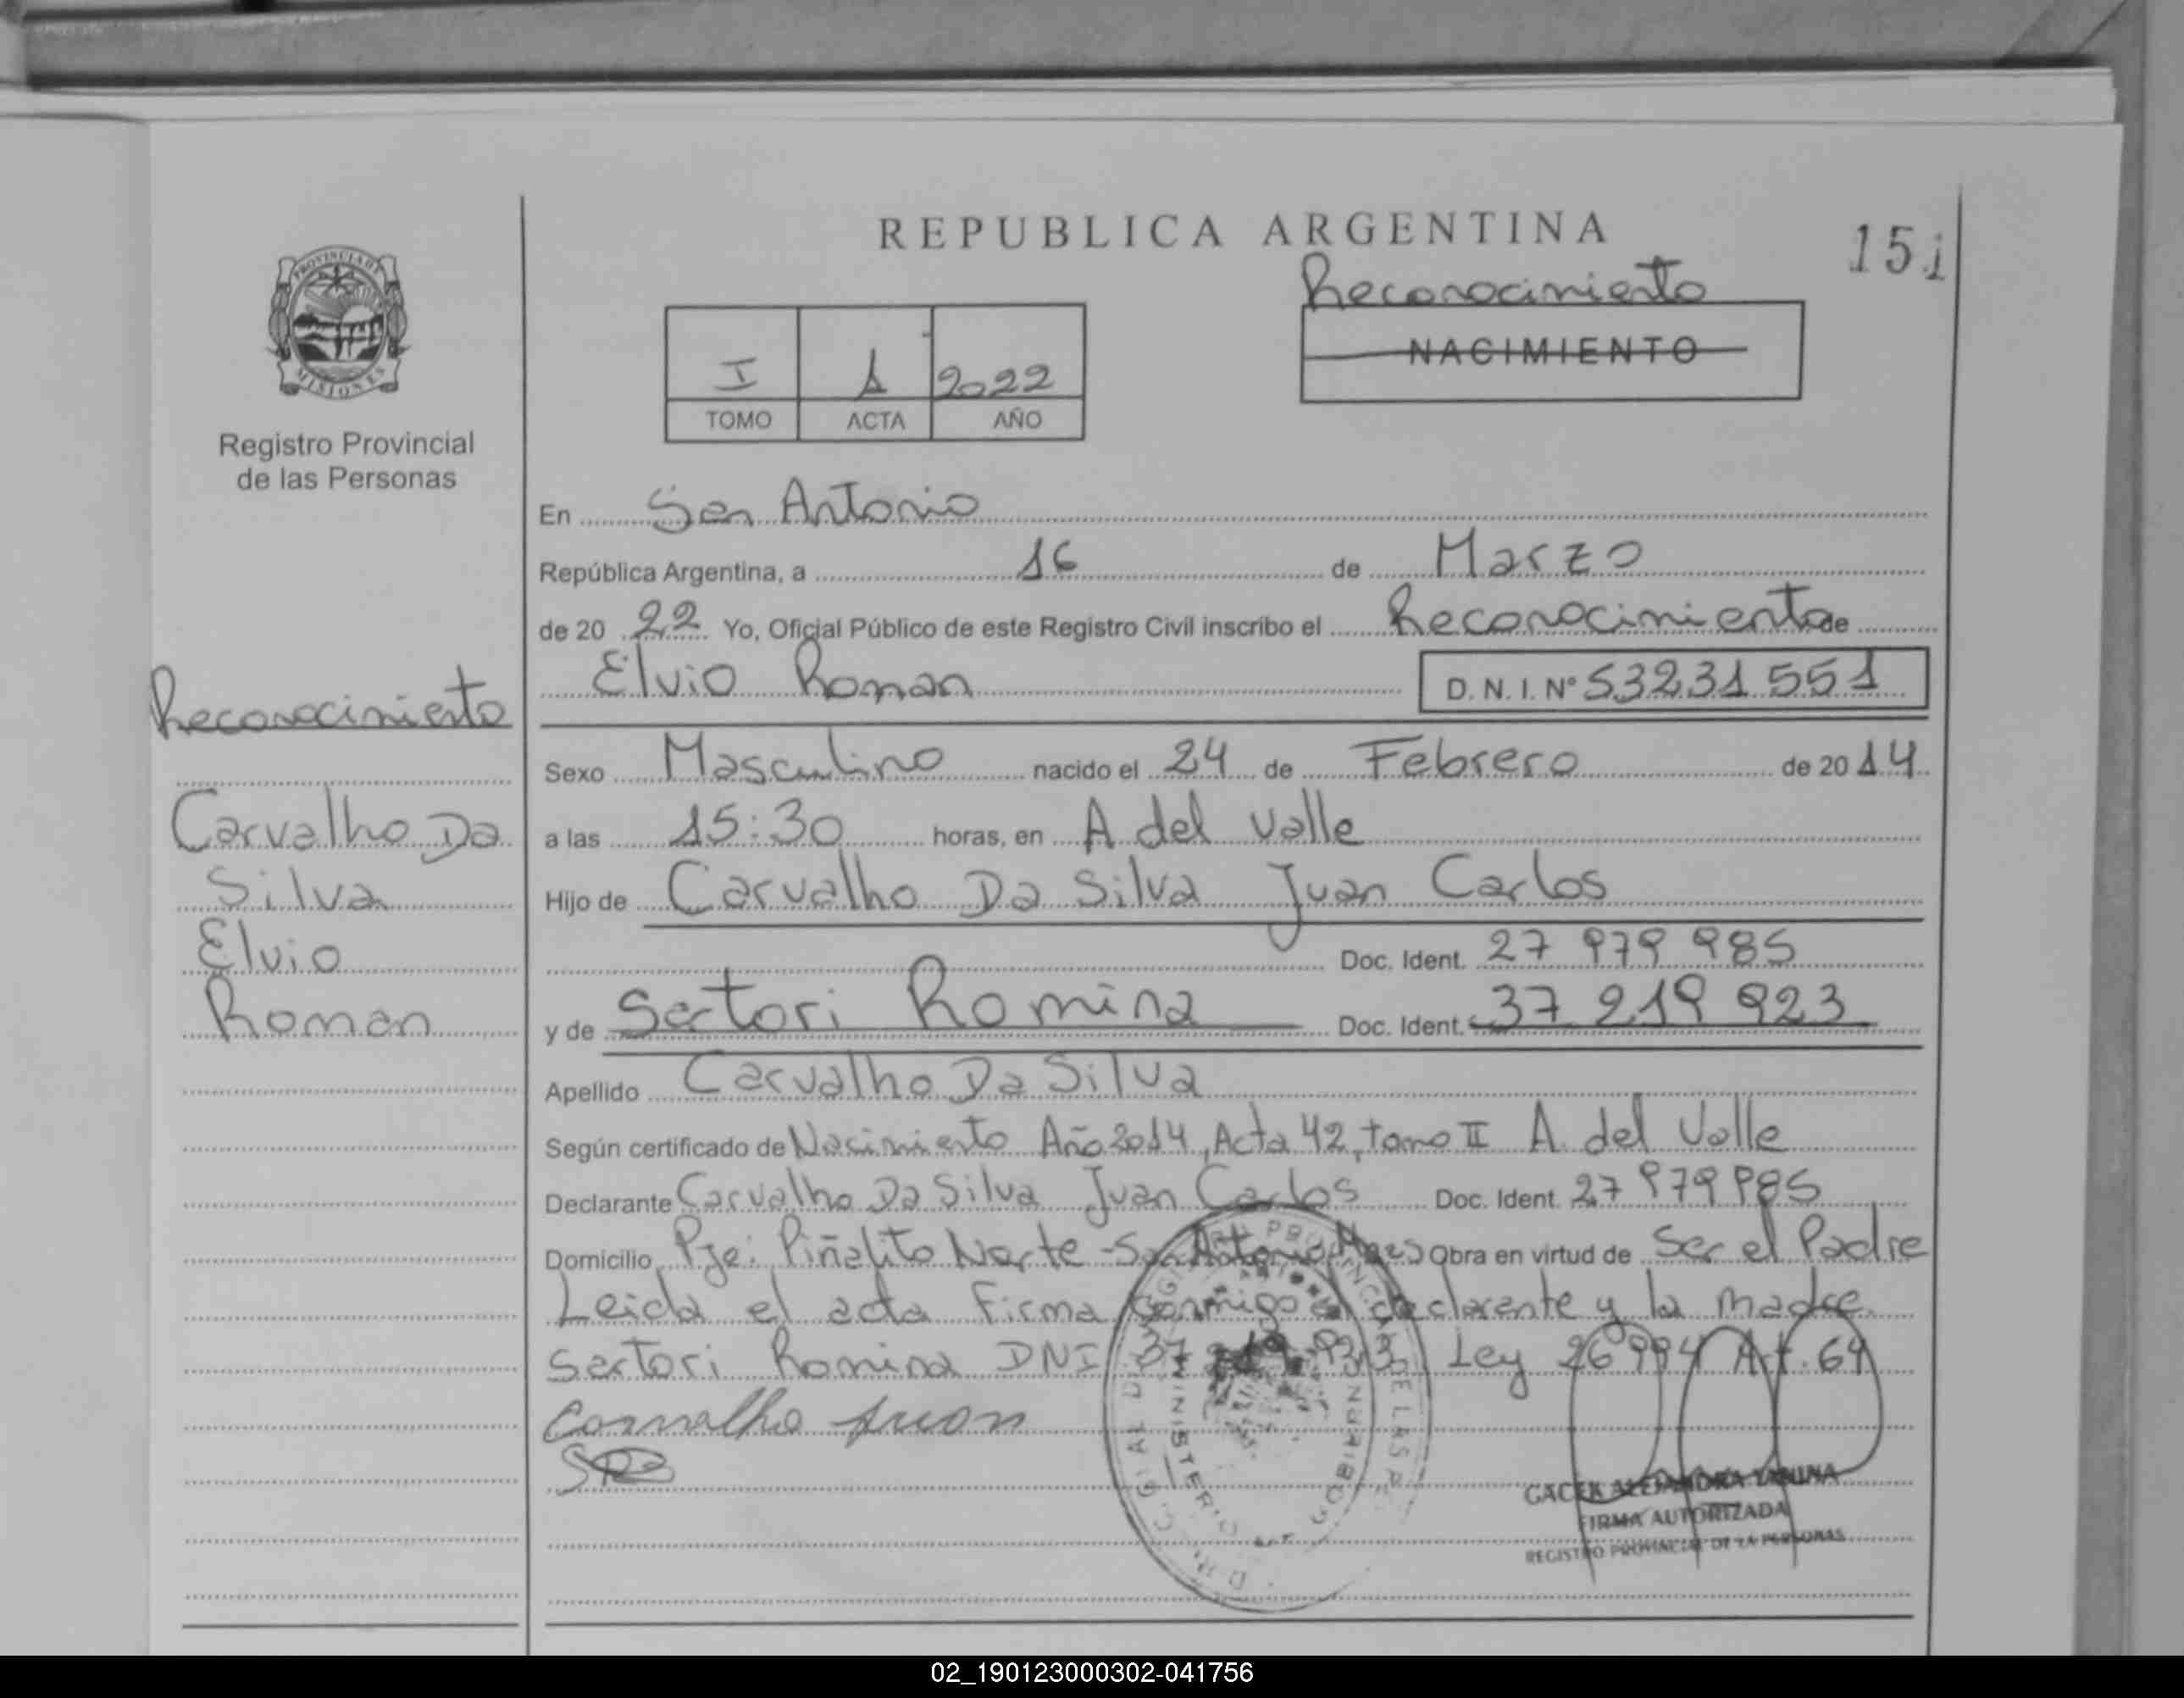 REPUBLICA ARGENTINA
15
Reconocimiento
NACIMIENTO
PROVINCIA DE
MISIONES
Registro Provincial
de las Personas
I 1 2022
TOMO ACTA AÑO
En San Antonio
República Argentina, a 16 de Marzo
de 20 22 Yo, Oficial Público de este Registro Civil inscribo el Reconocimiento de
Elvio Roman D.N.I. Nº 53231551
Reconocimiento
Carvalho Da
Silva
Elvio
Roman
Sexo Masculino nacido el 24 de Febrero de 20 14
a las 15:30 horas, en A del Valle
Hijo de Carvalho Da Silva Juan Carlos
Doc. Ident. 27 979 985
y de Sartori Romina Doc. Ident. 37 219 923
Apellido Carvalho Da Silva
Según certificado de Nacimiento Año 2014, Acta 42, tomo II A. del Valle
Declarante Carvalho Da Silva Juan Carlos Doc. Ident. 27 979 985
Domicilio Pje: Piñalito Norte - San Antonio Mnes Obra en virtud de Ser el Padre
Leida el acta firma conmigo el declarante y la madre
Sartori Romina DNI 37 219 923 Ley 26994 Art. 64
Carvalho Juan
GACEK ALEJANDRA YANINA
FIRMA AUTORIZADA
REGISTRO PROVINCIAL DE LA PERSONAS
02_190123000302-041756